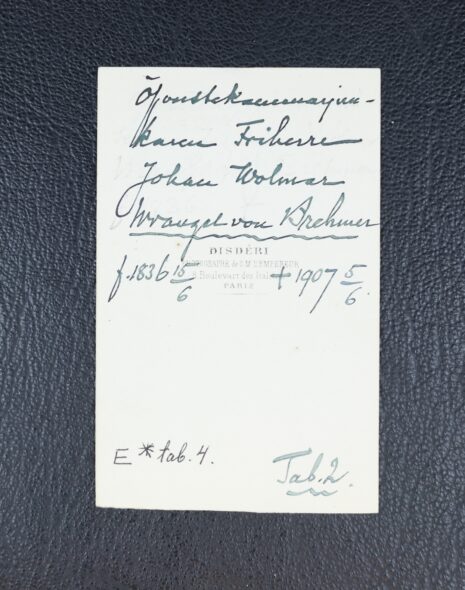 Tjänstekammarjun-
karen Friherre
Johan Wolmar
Wrangel von Brehmer
DISDÉRI
PHOTOGRAPHE de S.M. L'EMPEREUR
8 Boulevart des Italiens
PARIS
f. 1836 15/6 † 1907 5/6.
E * tab. 4.
Tab. 2.